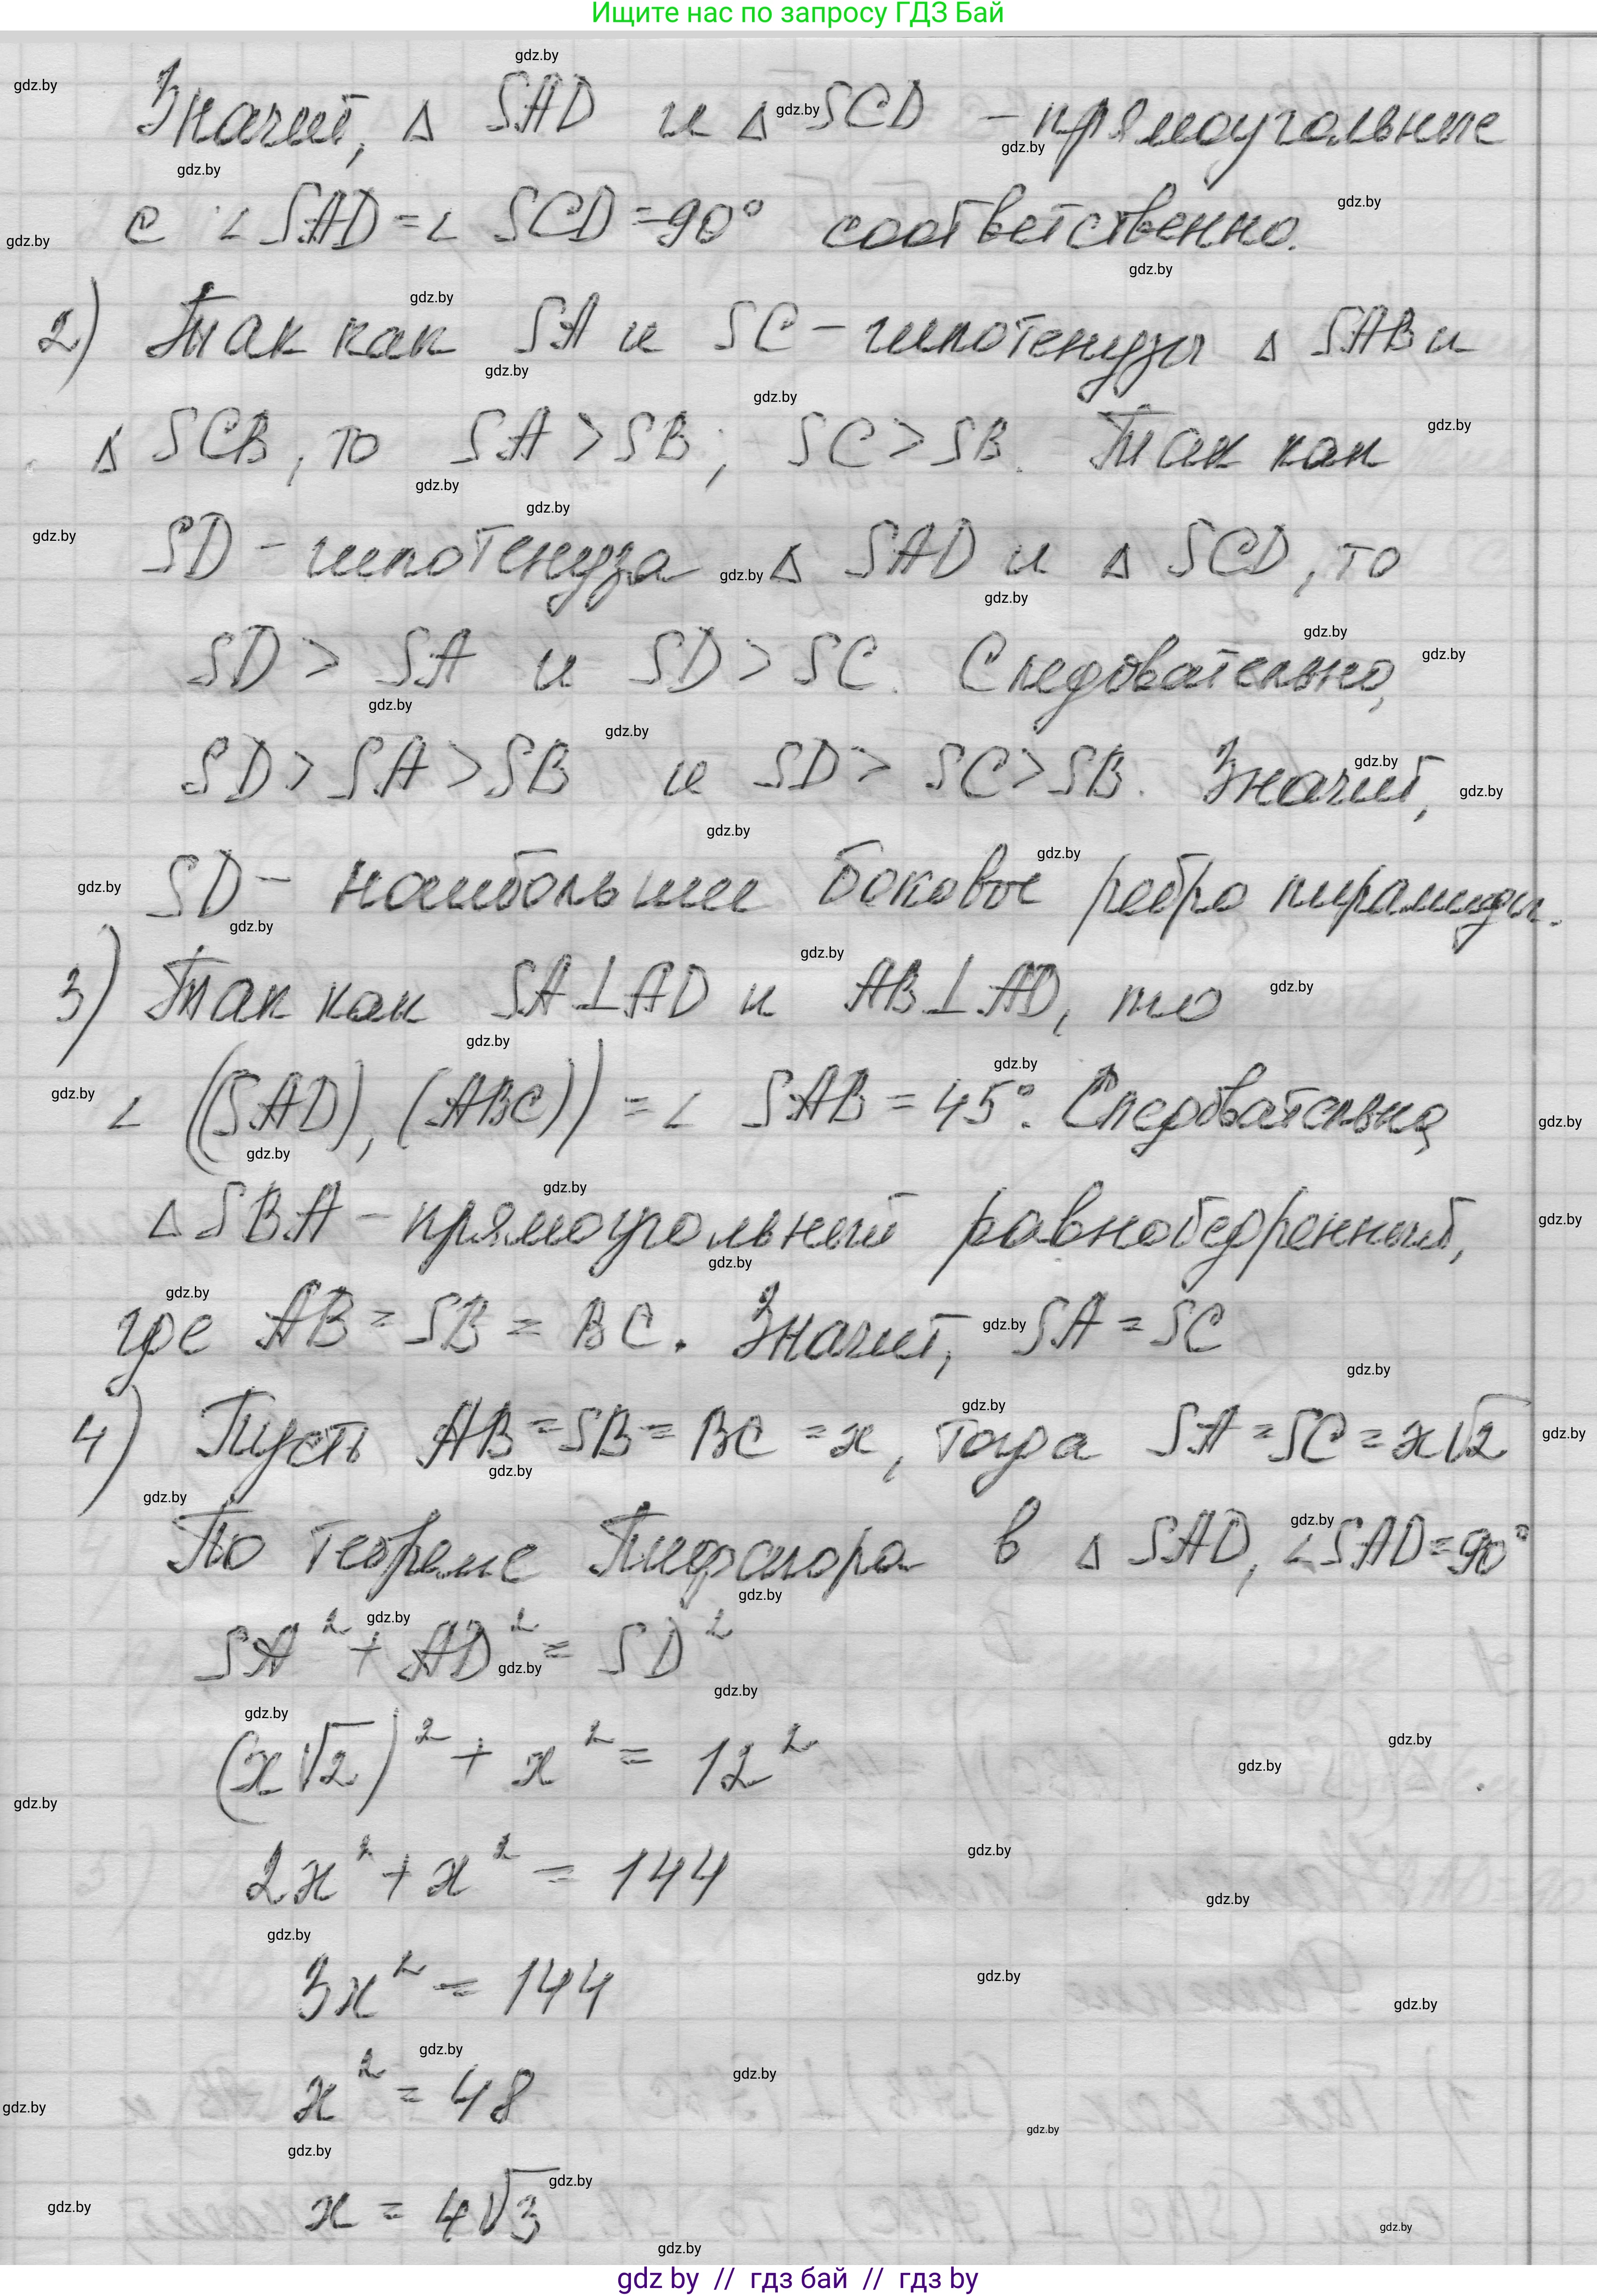 Ищите нас по запросу ГДЗ Бай
Значит, Δ SAD и Δ SCD – прямоугольные
с ∠ SAD = ∠ SCD = 90° соответственно.
2) Так как SA и SC – гипотенузы Δ SAB и
Δ SCB, то SA > SB; SC > SB. Так как
SD – гипотенуза Δ SAD и Δ SCD, то
SD > SA и SD > SC. Следовательно,
SD > SA > SB и SD > SC > SB. Значит,
SD – наибольшее боковое ребро пирамиды.
3) Так как SA ⊥ AD и AB ⊥ AD, то
∠ ((SAD), (ABC)) = ∠ SAB = 45°. Следовательно,
Δ SBA – прямоугольный равнобедренный,
где AB = SB = BC. Значит, SA = SC
4) Пусть AB = SB = BC = x, тогда SA = SC = x√2
По теореме Пифагора в Δ SAD, ∠SAD = 90°
SA² + AD² = SD²
(x√2)² + x² = 12²
2x² + x² = 144
3x² = 144
x² = 48
x = 4√3
gdz by // гдз бай // гдз by